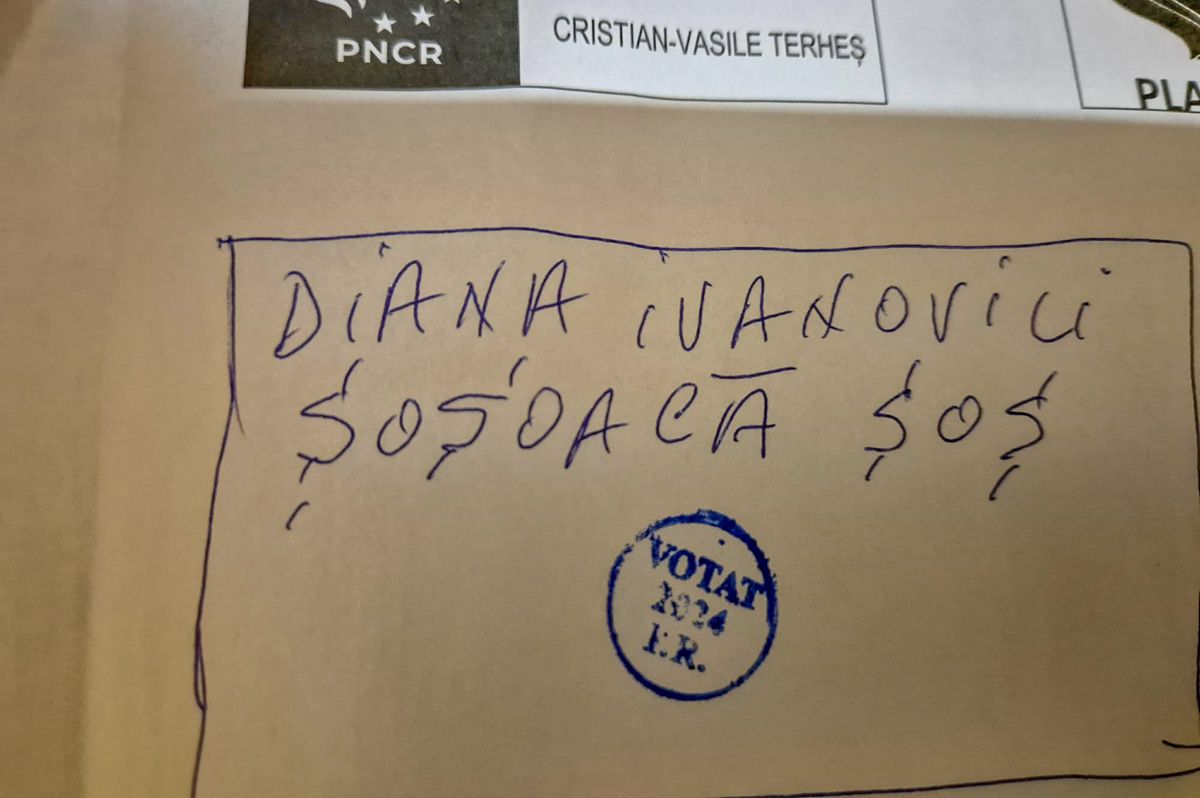 PNCR
CRISTIAN-VASILE TERHEȘ
PLA
DIANA IVANOVICI
ȘOȘOACĂ ȘOȘ
VOTAT
2024
P.R.